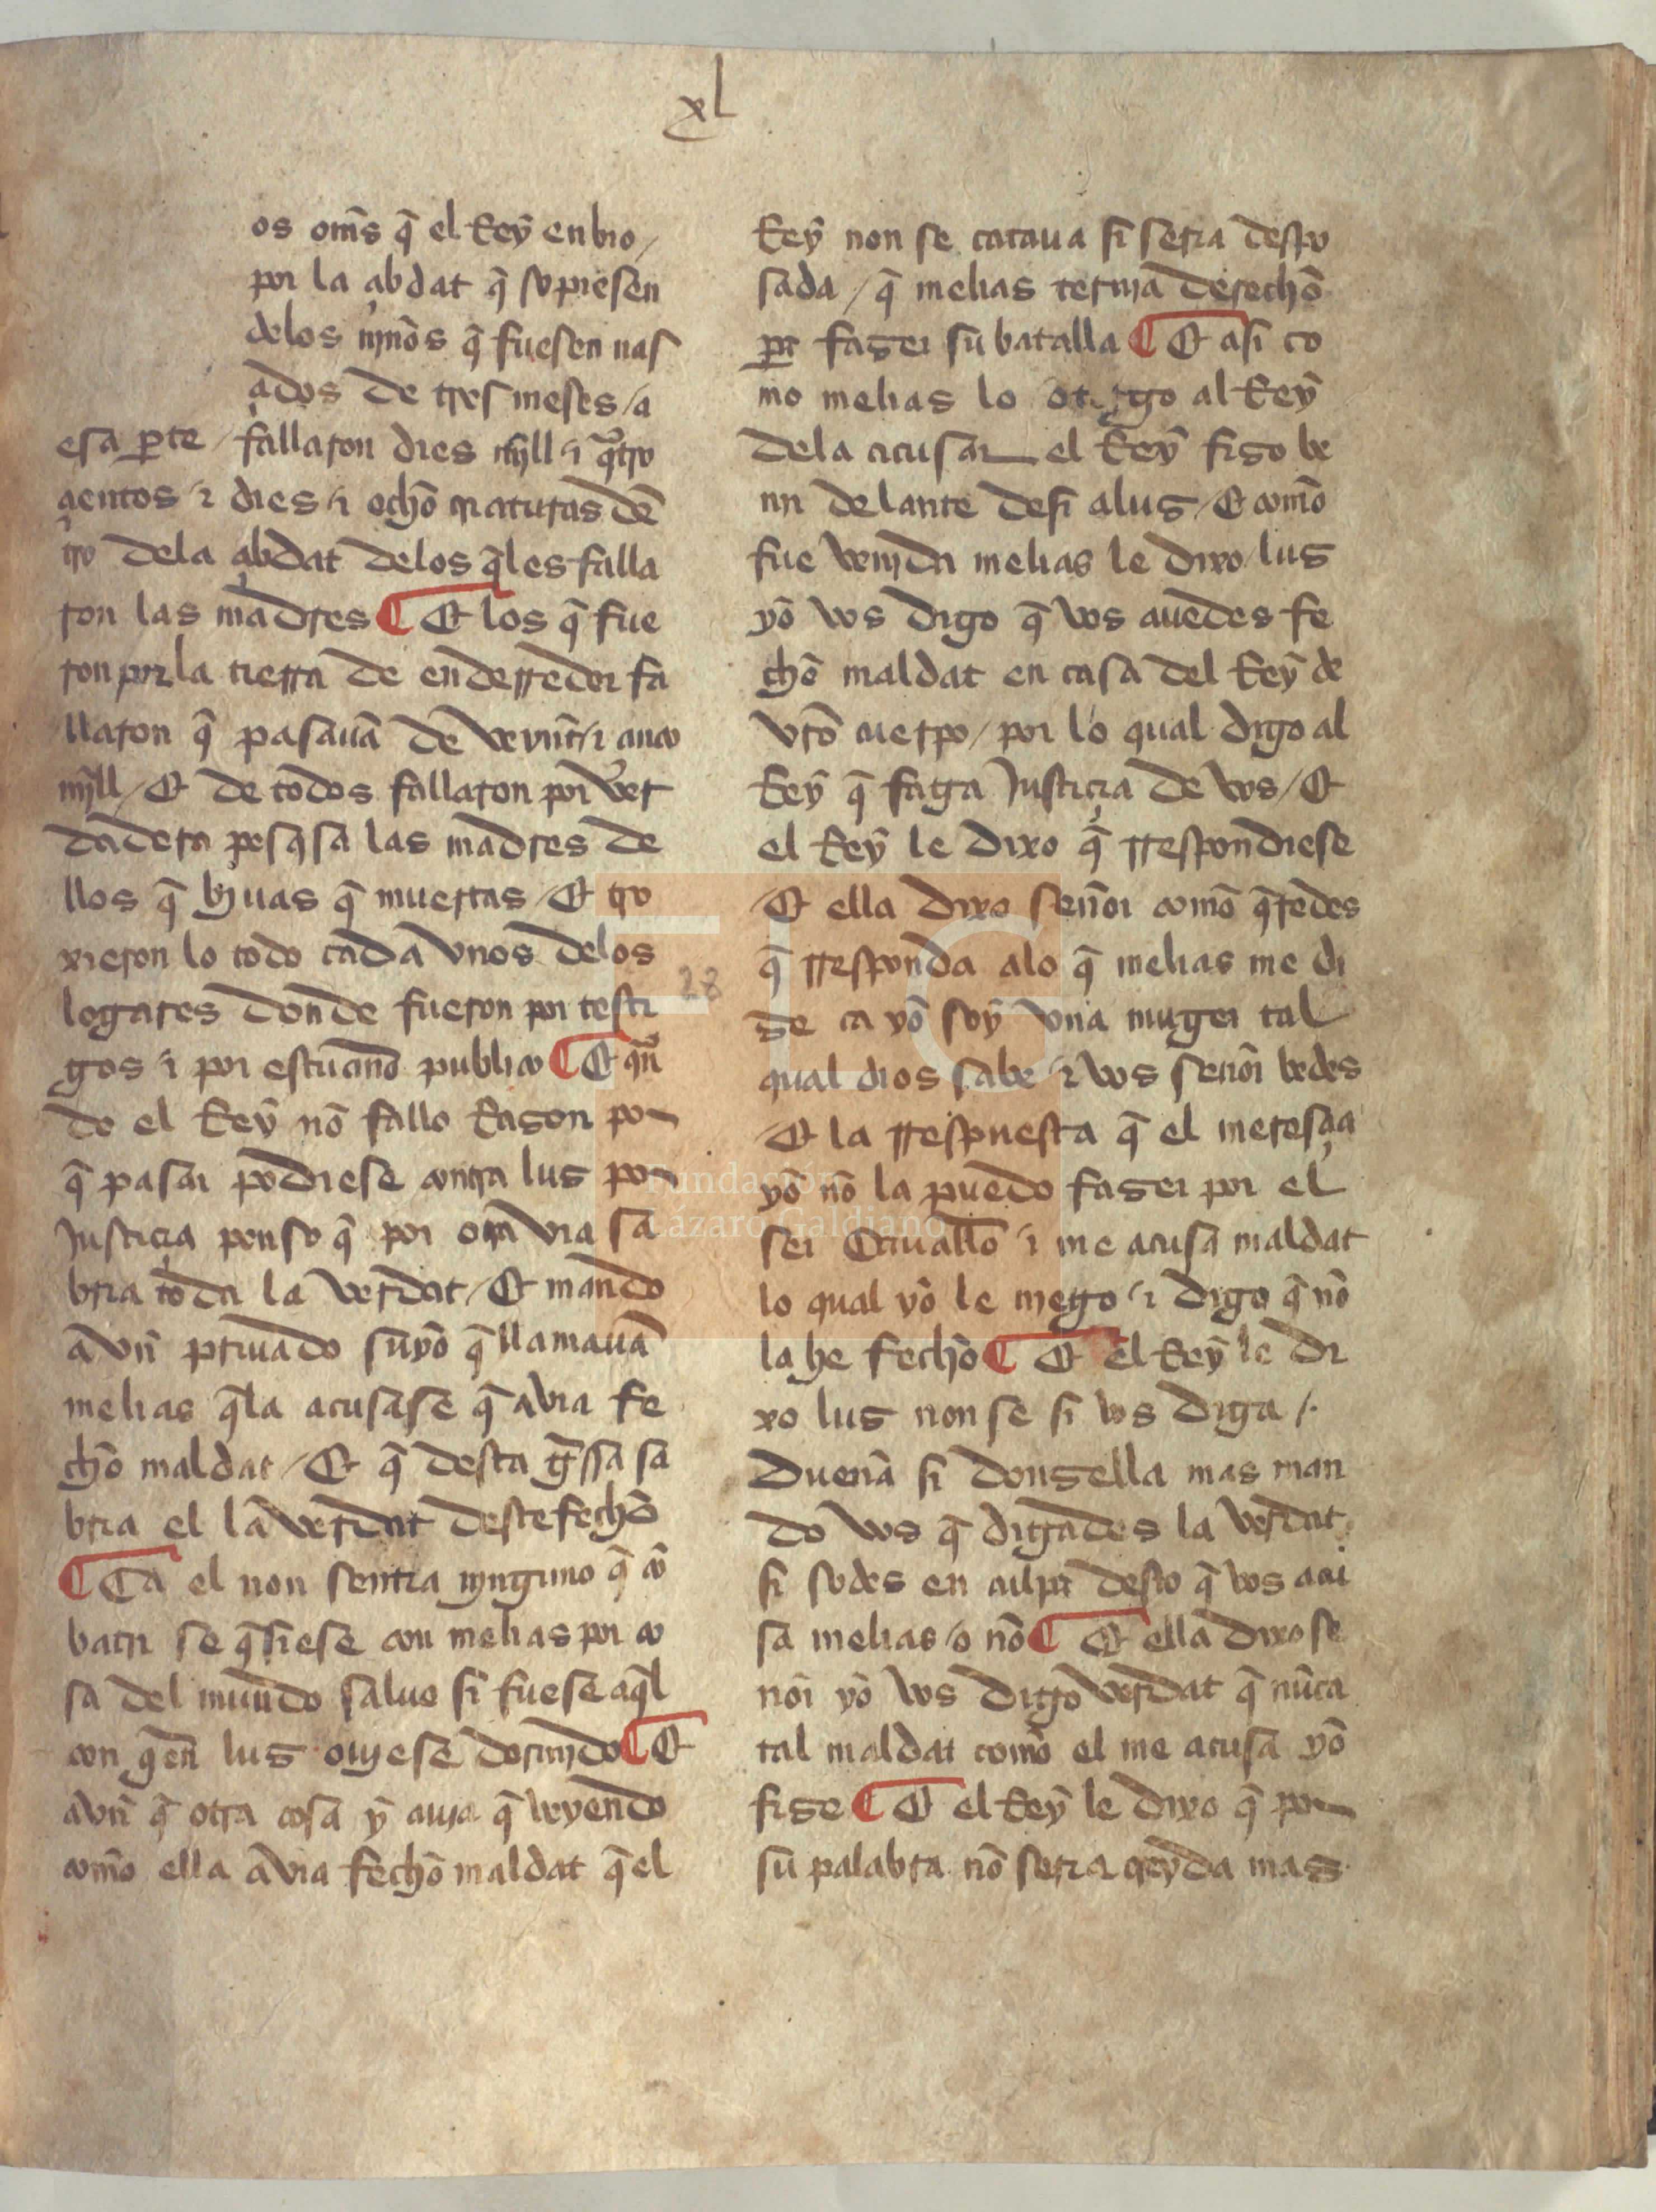 xl
os om̃s q̃ el Rey enbio /
por la çibdat q̃ sopiesen
delos niños q̃ fuesen nas
çidos de tres meses / a
esa parte / fallaron dies mill ⁊ q̃tro
çientos ⁊ dies ⁊ ochõ criaturas dẽ
tro dela çibdat delos q̃les falla
ron las madres ¶ Et los q̃ fue
ron por la tierra de enderredor fa
llaron q̃ pasauã de veynt ⁊ çinco
mill / Et de todos fallaron por ver
dadera pesq̃sa las madres de
llos q̃ biuas q̃ muertas / Et tro
xieron lo todo cada vnos delos
logares donde fueron por testi
gos ⁊ por escriuano publico ¶ Et q̃n
do el Rey nõ fallo Rason por
q̃ pasar podiese contra lus por
Justiçia penso q̃ por otra via sa
bria toda la verdat / Et mando
a vñ priuado suyo q̃ llamauã
melias q̃la acusase q̃ avia fe
chõ maldat / Et q̃ desta g̃ssa sa
bria el la verdat deste fechõ
¶ Ca el non sentia ninguno q̃ cõ
batir se q̃siese con melias por co
sa del mundo saluo si fuese aq̃l
con q̃en lus ouiese dormido ¶ Et
avñ q̃ otra cosa y auia q̃ veyendo
com̃o ella avia fechõ maldat q̃ el
Rey non se cataua si seria despo
sada / q̃ melias ternia derechõ
par faser su batalla ¶ Et asi co
mo melias lo otorgo al Rey
dela acusar el Rey fiso be
nir delante desi a lus / Et com̃o
fue venida melias le dixo lus
yo vos digo q̃ vos auedes fe
chõ maldat en casa del Rey de
vr̃o cuerpo / por lo qual digo al
Rey q̃ faga Justiçia de vos / Et
el Rey le dixo q̃ rrespondiese
Et ella dixo señor com̃o q̃redes
q̃ rresponda alo q̃ melias me di
se ca yo soy vna muger tal
qual dios sabe ⁊ vos señor bedes
Et la rrespuesta q̃ el meresçia
yo nõ la puedo faser por el
ser Cauallõ ⁊ me acusa maldat
lo qual yo le niego ⁊ digo q̃ nõ
la he fechõ ¶ Et el Rey le di
xo lus non se si vos diga /.
Dueña si donsella mas man
do vos q̃ digades la verdat
si sodes en culpa desto q̃ vos acu
sa melias / o nõ ¶ Et ella dixo se
ñor yo vos digo verdat q̃ nũca
tal maldat como el me acusa yo
fise ¶ Et el Rey le dixo q̃ por
su palabra nõ seria creyda mas
28
Fundación
Lázaro Galdiano
FLG